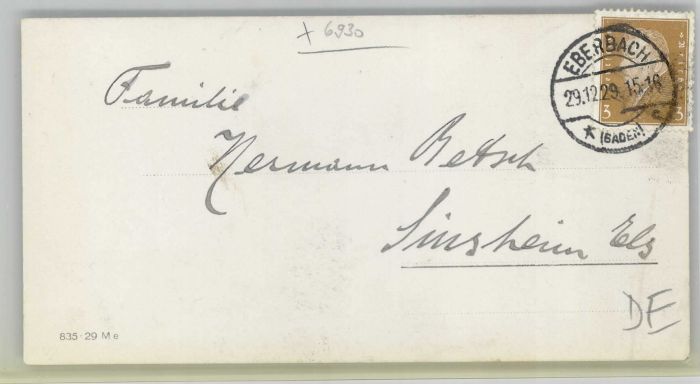 + 6930
EBERBACH
29.12.29. 15-16
* (BADEN) c
3 3
Familie
Hermann Betsch
Sinsheim Els
DE
835-29 M e